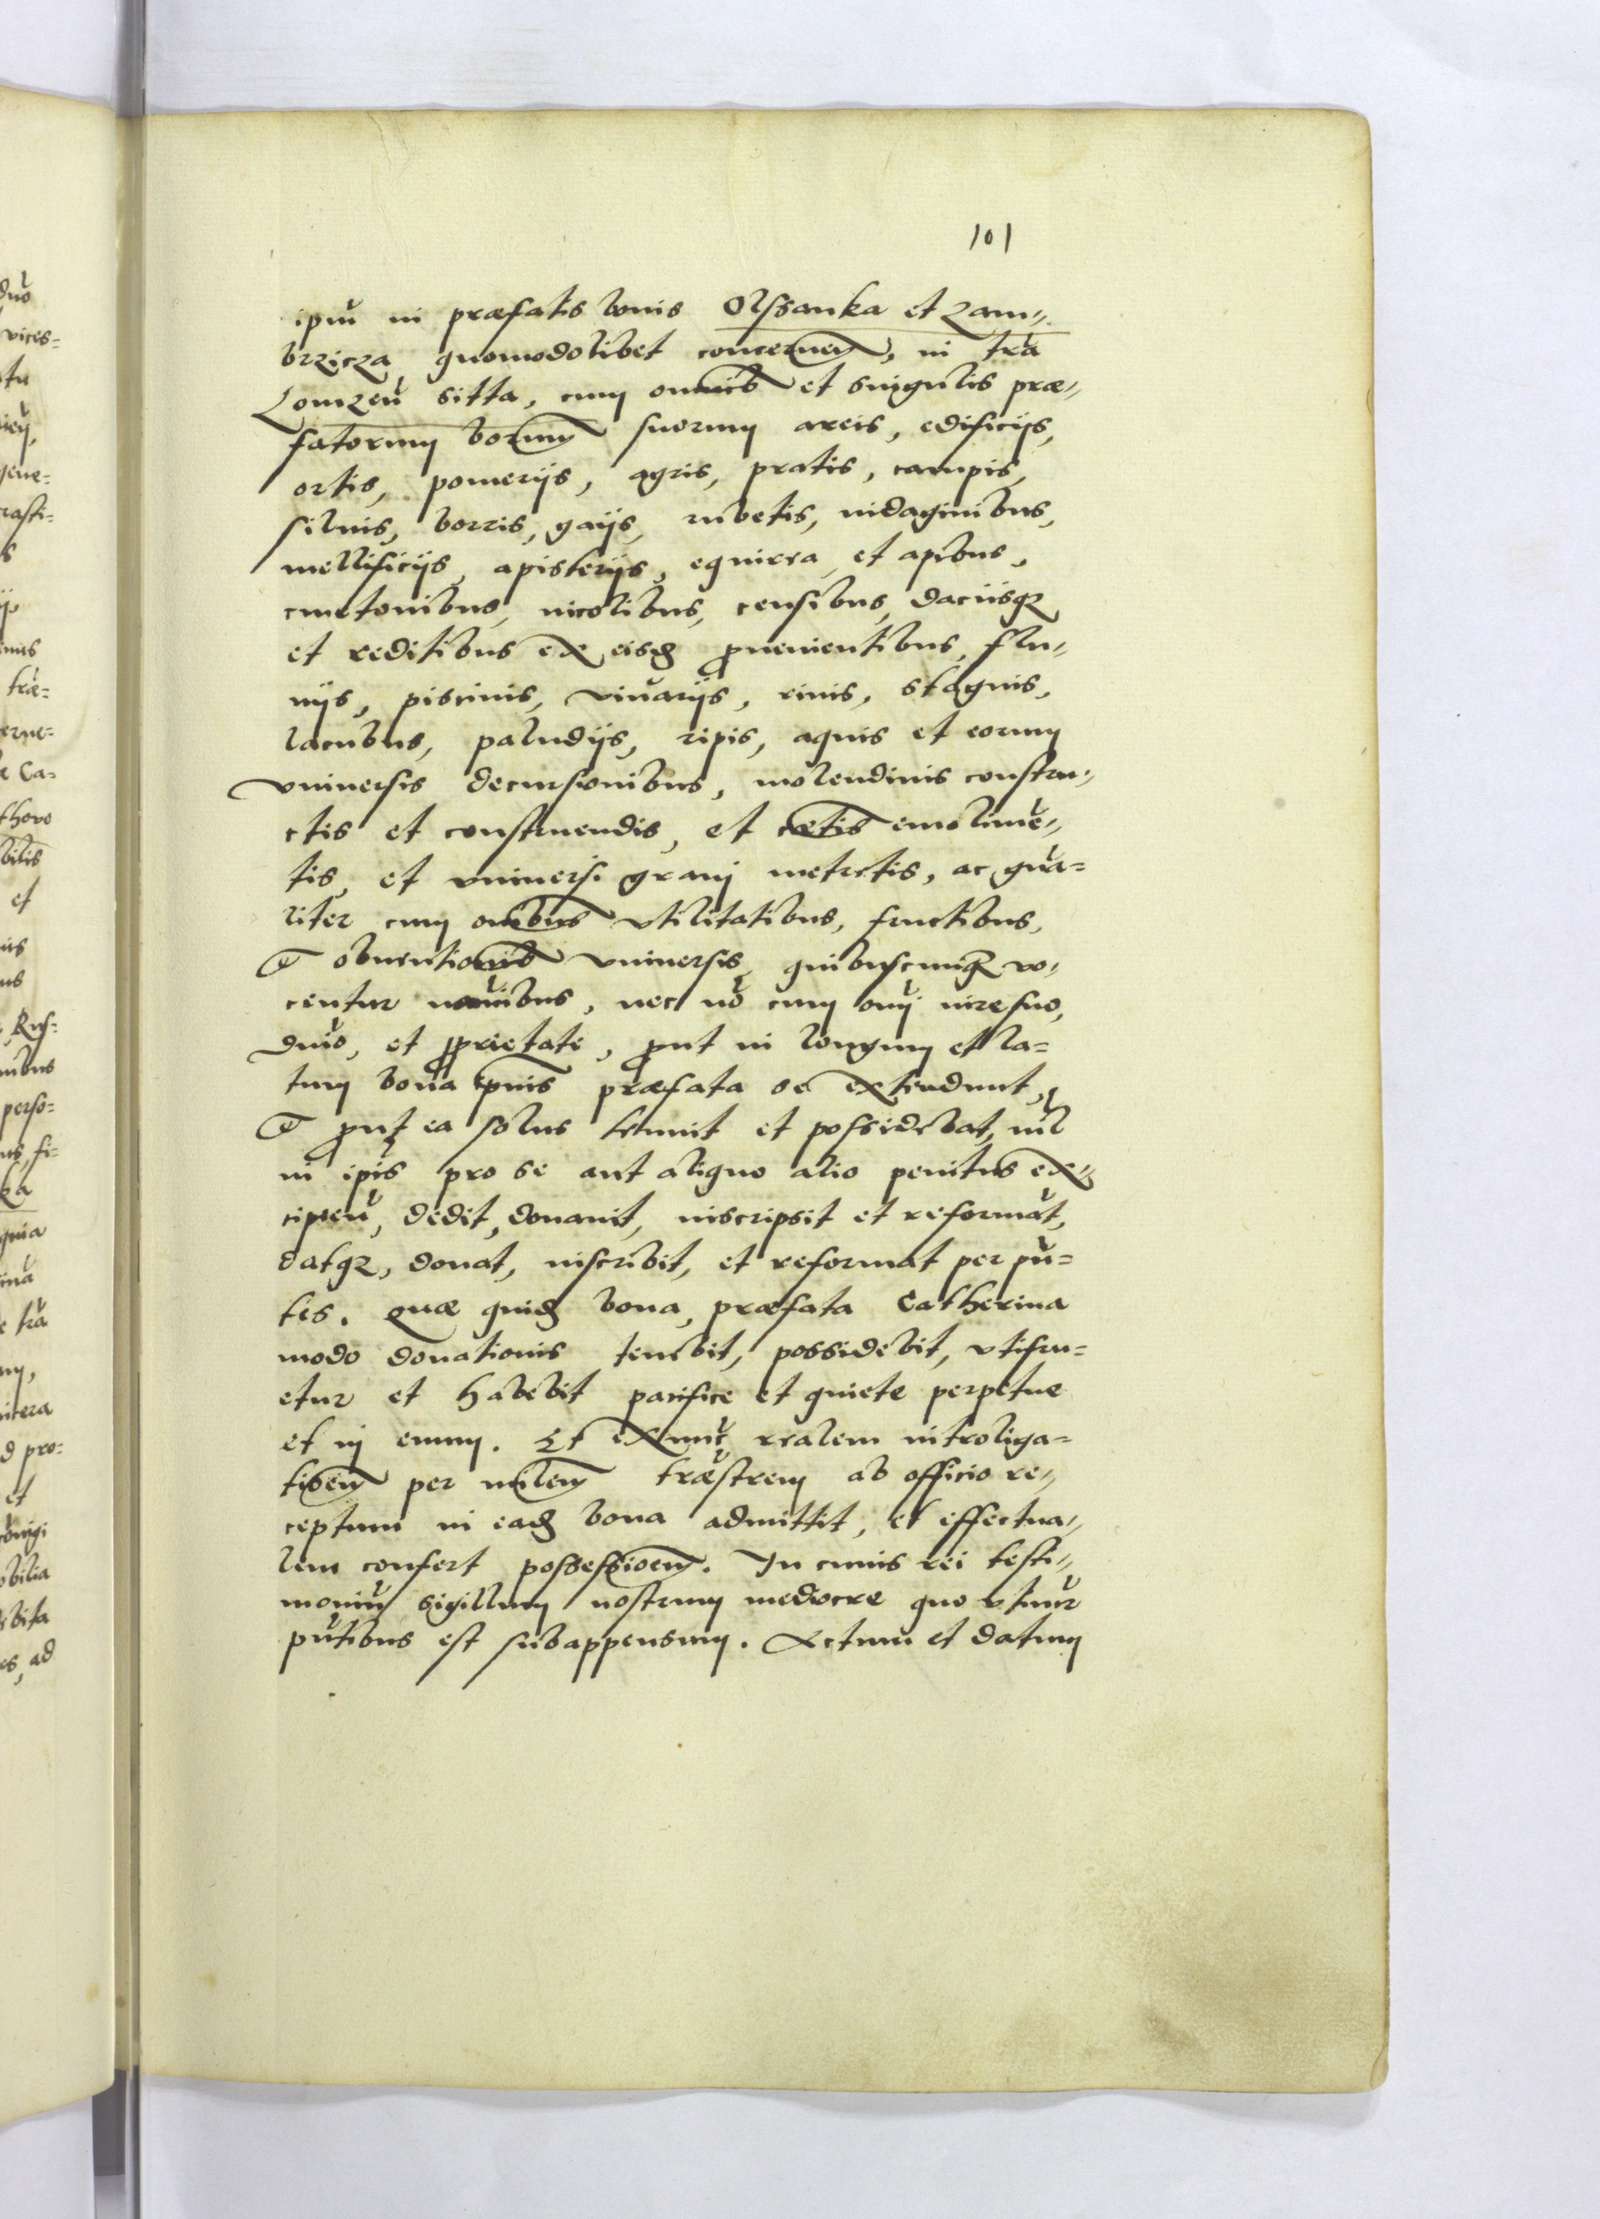 101
ipm̄ in præfatis bonis Olssanka et Zam=
brzicza quomodolibet concerneñ, in tr̄a
Lomzeñ sitta, cum om̄ib et singulis præ=
fatorum bonorum suorum areis, edificijs,
ortis, pomerijs, agris, pratis, campis,
siluis, borris, gaijs, rubetis, indaginibus,
mellificijs, apisterijs, equirea et apibus,
cmetonibus, incolibus, censibus, dacijsq3
et reditibus ex eisd prouenientibus, flu=
uijs, piscinis, viuarijs, riuis, stagnis,
lacubus, paludijs, ripis, aquis et eorum
vniuersis decursionibus, molendinis constru=
ctis et construendis, et cætis emolumē=
tis, et vniuersi granj metretis, ac gnā=
liter cum om̄ibus vtilitatibus, fructibus,
et obuentionib vniuersis, quibuscunq3 vo=
centur nom̄ibus, nec nō cum omj iure suo,
dn̄io, et proprietate, prout in longum et la=
tum bona ip̄mis præfata se extendunt,
et prout ea solus tenuit et possidebat, nil
in ip̄is pro se aut aliquo alio penitus ex=
cipieñ, dedit, donauit, inscripsit et reformāt,
datq3, donat, inscribit, et reformat per pn̄=
tes. Quæ quid bona, præfata Catherina
modo donationis tenebit, possidebit, vtifru=
etur et habebit pacifice et quiete perpetue
et in euum. Et exnūc realem intrōliga=
tioem per mīlem træstrem ab officio re=
ceptum in ead bona admittit, et effectua=
lem confert possessioem. In cuius rei testi=
moniū sigillum nostrum mediocre quo vtimr
pn̄tibus est subappensum. Actum et datum